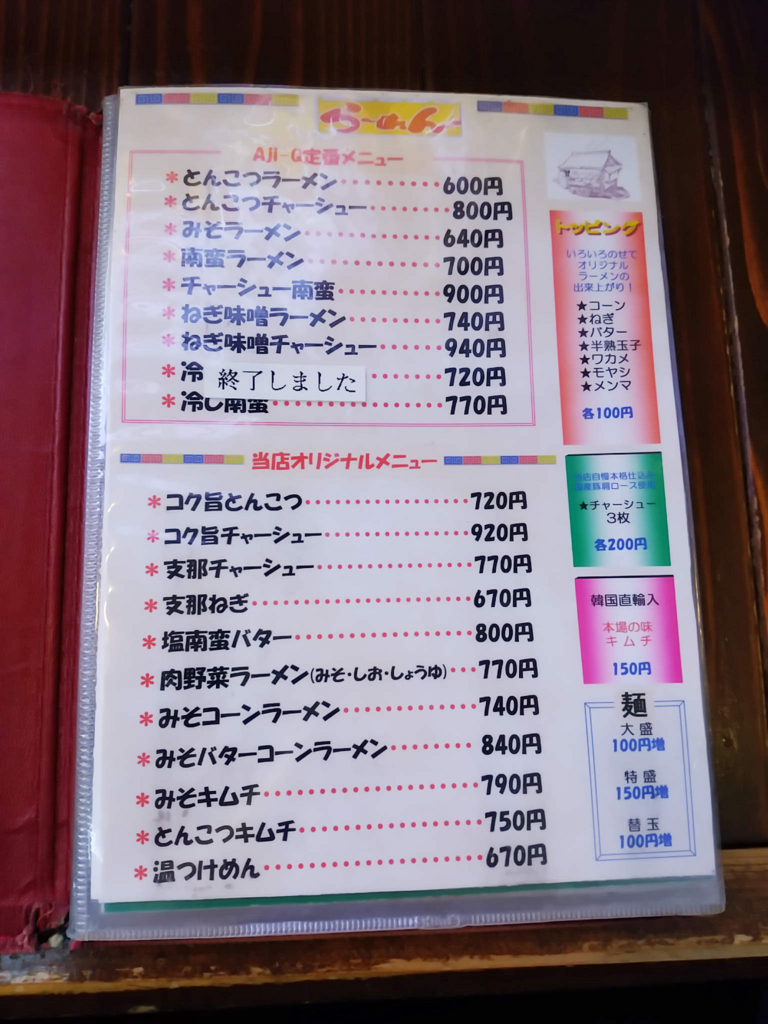 らーめん
Aji-Q定番メニュー
*とんこつラーメン・・・・・・・・・・600円
*とんこつチャーシュー・・・・・・・・800円
*みそラーメン・・・・・・・・・・・・640円
*南蛮ラーメン・・・・・・・・・・・・700円
*チャーシュー南蛮・・・・・・・・・・900円
*ねぎ味噌ラーメン・・・・・・・・・・740円
*ねぎ味噌チャーシュー・・・・・・・・940円
*冷 ・・・・・・・・720円
終了しました
*冷し南蛮・・・・・・・・・・・・・・770円
当店オリジナルメニュー
*コク旨とんこつ・・・・・・・・・・・720円
*コク旨チャーシュー・・・・・・・・・920円
*支那チャーシュー・・・・・・・・・・770円
*支那ねぎ・・・・・・・・・・・・・・670円
*塩南蛮バター・・・・・・・・・・・・800円
*肉野菜ラーメン(みそ・しお・しょうゆ)・・・770円
*みそコーンラーメン・・・・・・・・・740円
*みそバターコーンラーメン・・・・・・840円
*みそキムチ・・・・・・・・・・・・・790円
*とんこつキムチ・・・・・・・・・・・750円
*温つけめん・・・・・・・・・・・・・670円
トッピング
いろいろのせて
オリジナル
ラーメンの
出来上がり!
★コーン
★ねぎ
★バター
★半熟玉子
★ワカメ
★モヤシ
★メンマ
各100円
当店自慢本格仕込み
国産豚肩ロース使用
★チャーシュー
3枚
各200円
韓国直輸入
本場の味
キムチ
150円
麺
大盛
100円増
特盛
150円増
替玉
100円増